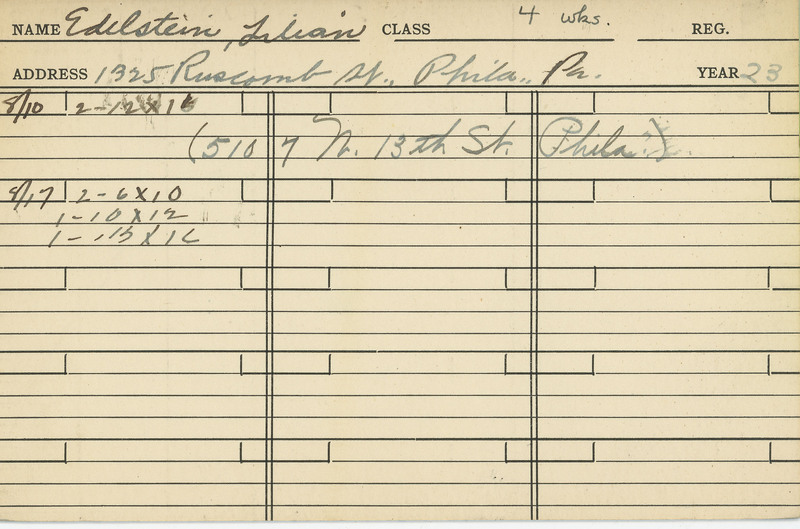 NAME Edelstein, Lilian CLASS 4 wks. REG.
ADDRESS 1325 Ruscomb St., Phila., Pa. YEAR 23
8/10 2-12x16
(5107 N. 13th St. Phila.)
8/17 2-6x10
1-10x12